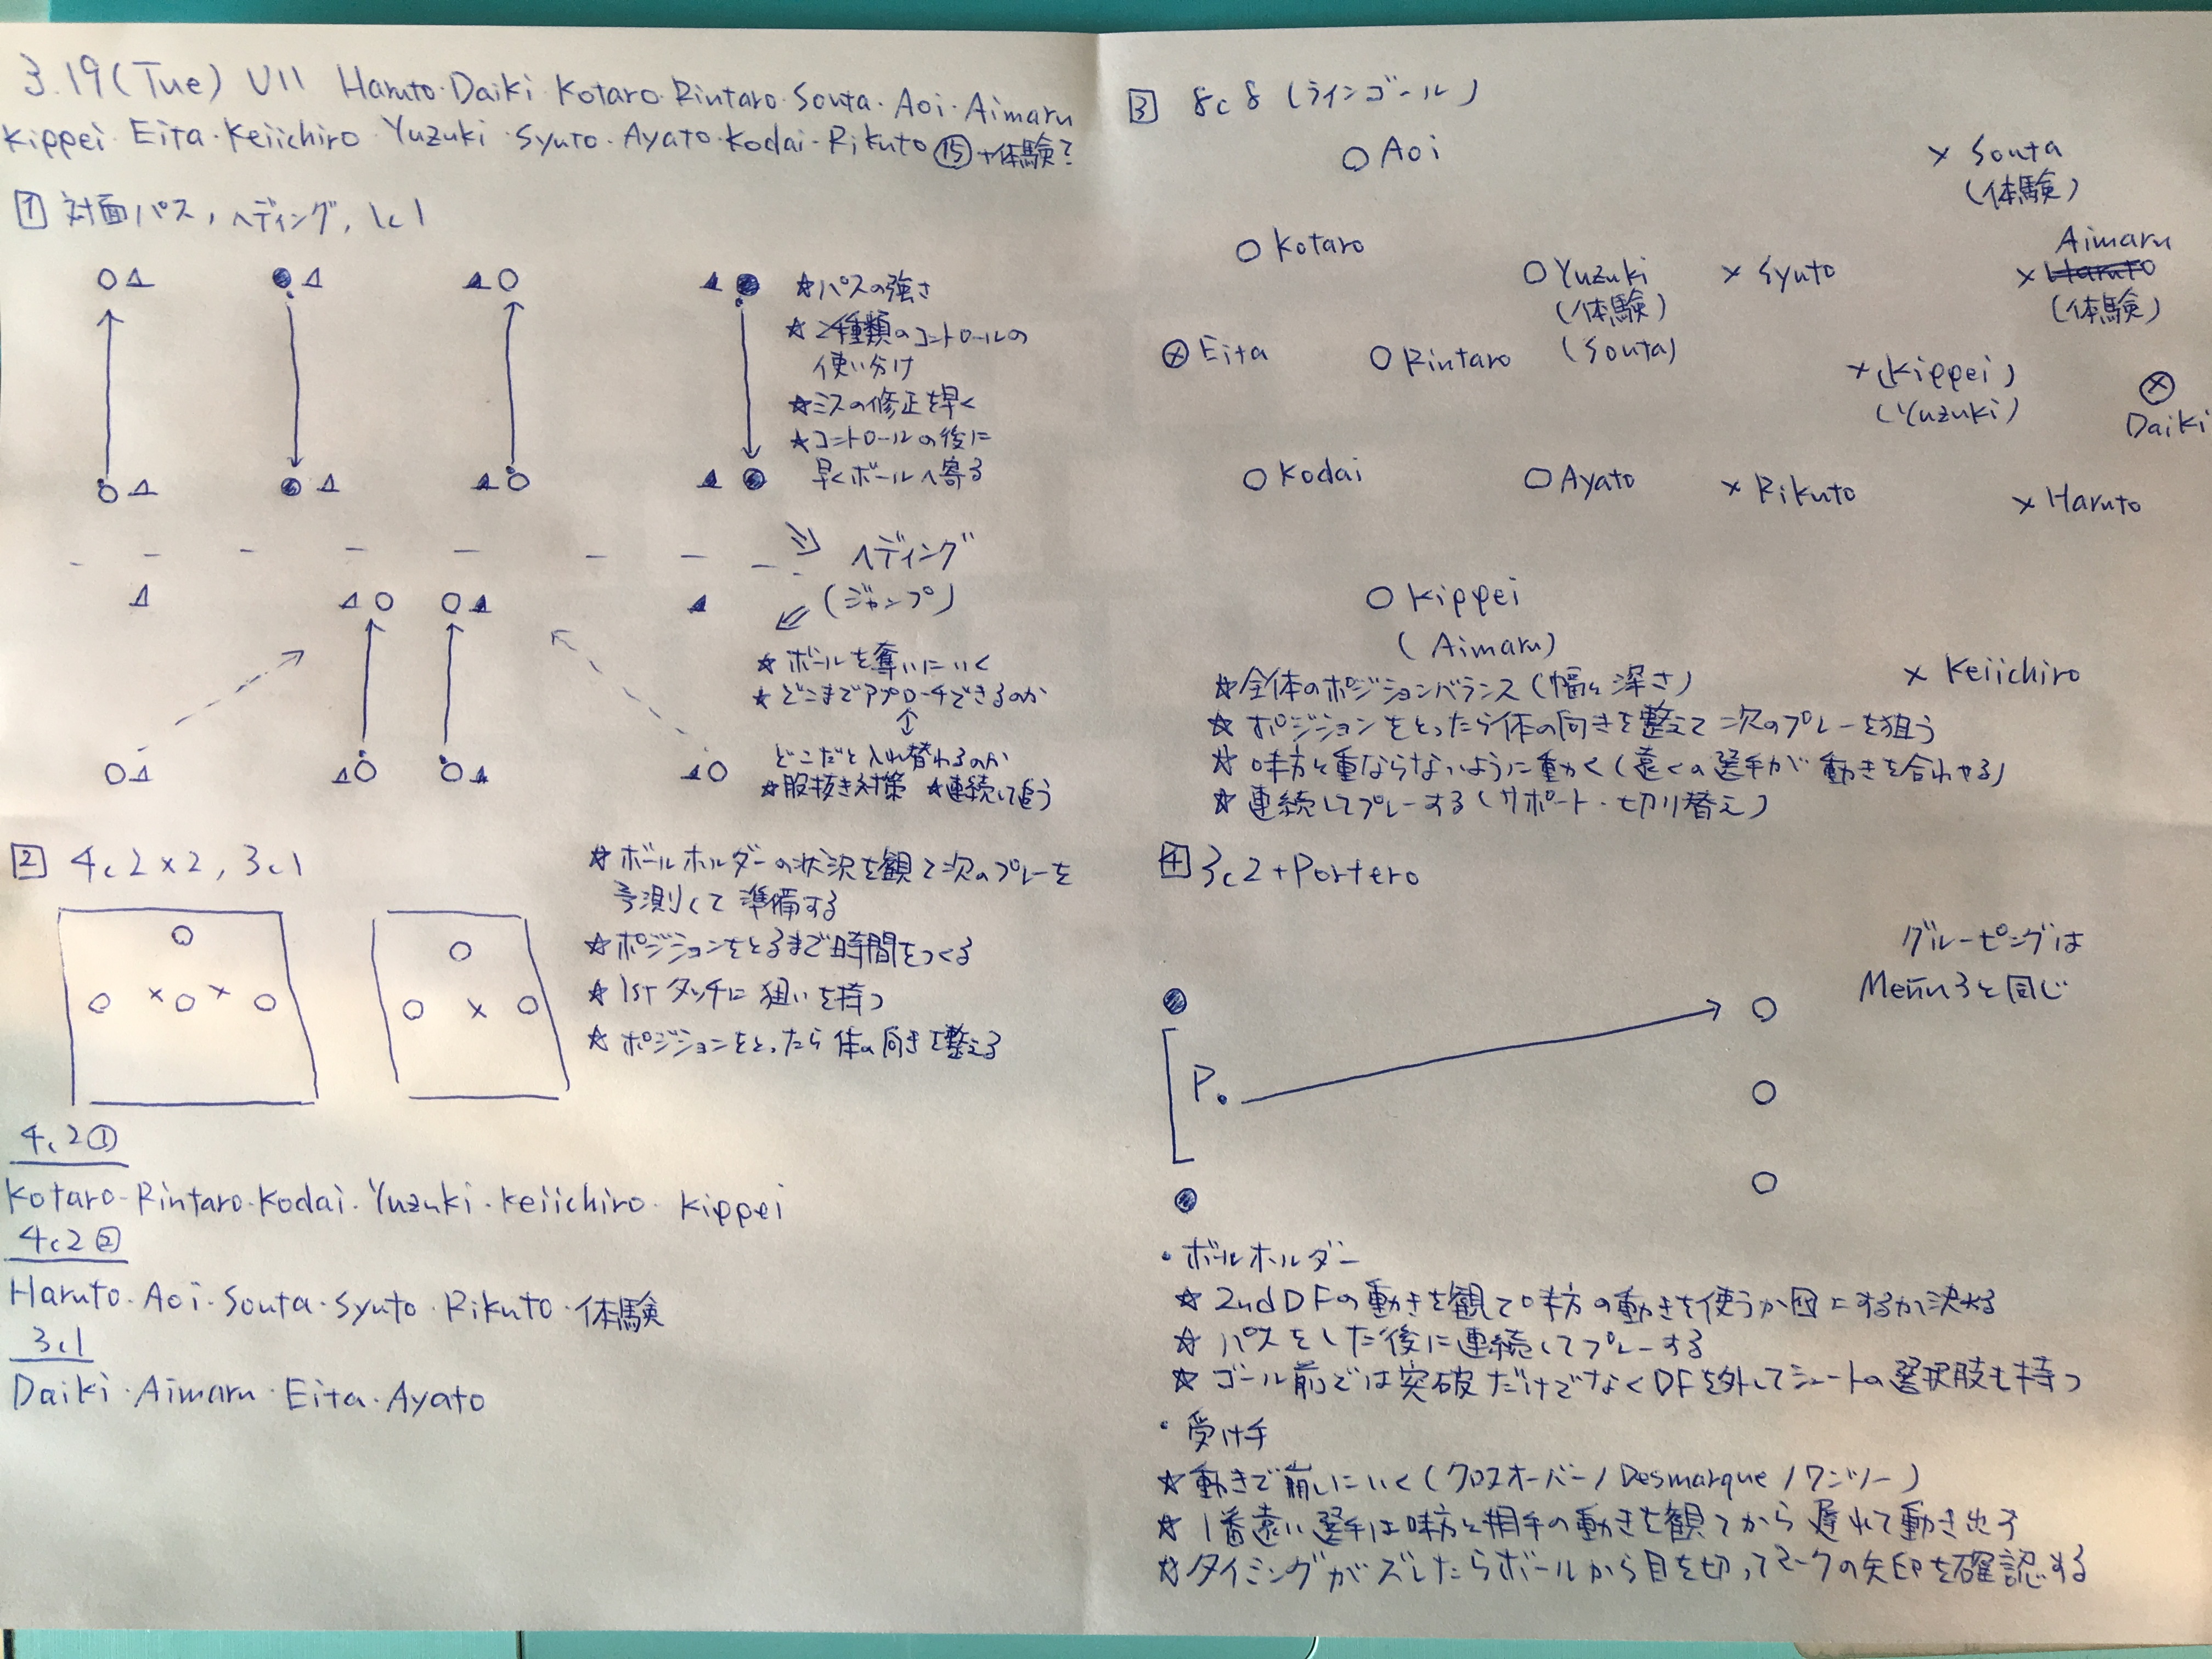 3.19(Tue) U11 Haruto・Daiki・Kotaro・Rintaro・Souta・Aoi・Aimaru
Kippei・Eita・Keiichiro・Yuzuki・Syuto・Ayato・Kodai・Rikuto ⑮+体験?
1 対面パス, ヘディング, 1c1
☆パスの強さ
☆2種類のコントロールの
使い分け
☆ミスの修正を早く
☆コントロールの後に
早くボールへ寄る
ヘディング
(ジャンプ)
☆ボールを奪いにいく
☆どこまでアプローチできるのか
どこだと入れ替わるのか
☆股抜き対策 ☆連続して追う
2 4c2×2, 3c1
☆ボールホルダーの状況を観て次のプレーを
予測して準備する
☆ポジションをとるまで時間をつくる
☆1stタッチに狙いを持つ
☆ポジションをとったら体の向きを整える
4c2①
Kotaro・Rintaro・Kodai・Yuzuki・Keiichiro・Kippei
4c2②
Haruto・Aoi・Souta・Syuto・Rikuto・体験
3c1
Daiki・Aimaru・Eita・Ayato
3 8c8 (ラインゴール)
○Aoi
× Souta
(体験)
○Kotaro
○Yuzuki
(体験)
(Souta)
× Syuto
Aimaru
× Haruto
(体験)
⊗Eita
○Rintaro
×(Kippei)
(Yuzuki)
⊗
Daiki
○Kodai
○Ayato
× Rikuto
× Haruto
○Kippei
(Aimaru)
× Keiichiro
☆全体のポジションバランス(幅と深さ)
☆ポジションをとったら体の向きを整えて次のプレーを狙う
☆味方と重ならないように動く(遠くの選手が動きを合わせる)
☆連続してプレーする(サポート・切り替え)
4 3c2+Portero
グルーピングは
Menu3と同じ
P.
・ボールホルダー
☆2ndDFの動きを観て味方の動きを使うか囮にするか決める
☆パスをした後に連続してプレーする
☆ゴール前では突破だけでなくDFを外してシュートの選択肢も持つ
・受け手
☆動きで崩しにいく(クロスオーバー/Desmarque/ワンツー)
☆1番遠い選手は味方と相手の動きを観てから遅れて動き出す
☆タイミングがズレたらボールから目を切ってマークの矢印を確認する